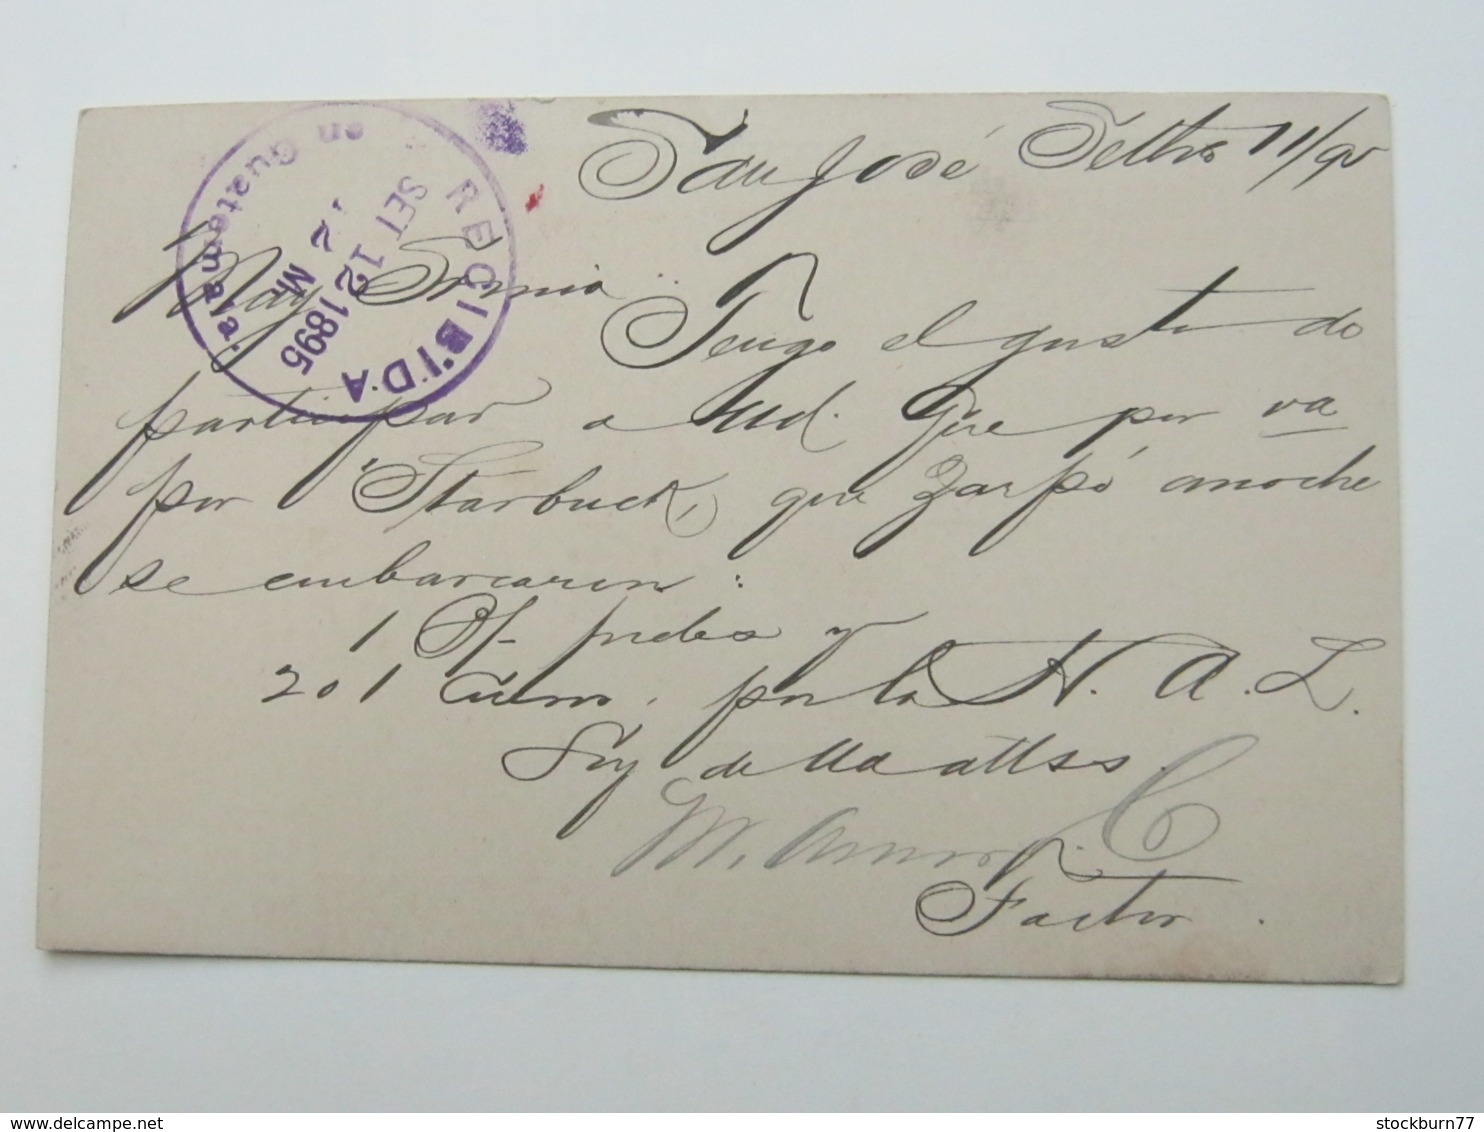 San José Setbre 11/95
RECIBIDA
en Guatemala.
SET 12 1895
12 M
Muy Sr mio:
Tengo el gusto de
participar a Ud. que por va
por "Starbuck", que zarpó anoche
se embarcaron:
1 Bf- y
201 Cueros, por la H. A. L.
Soy de Ud atto ss.
M.
Factor.
stockburn77